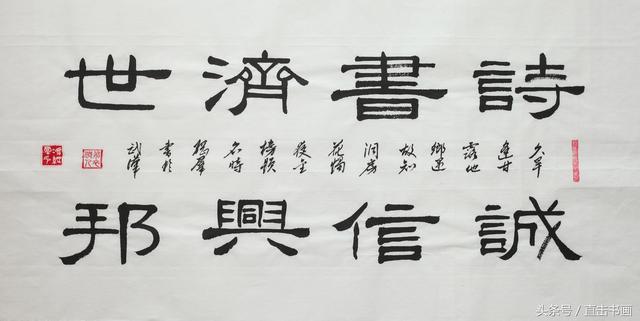 詩書濟世
誠信興邦
久旱
逢甘
露他
鄉遇
故知
洞房
花燭
夜金
榜題
名時
書於
武漢
头条号／直击书画